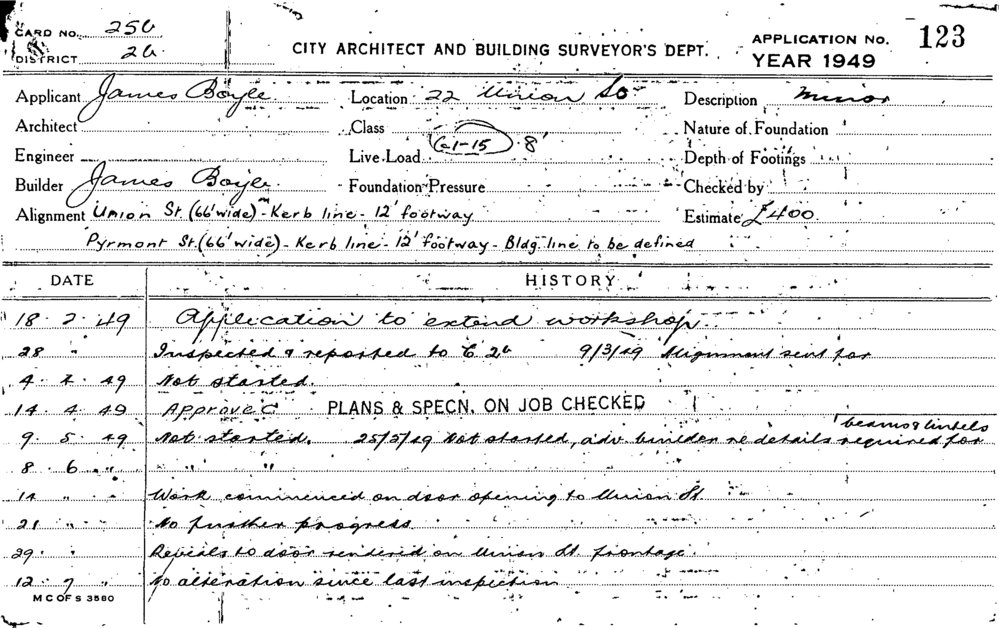 CARD NO. 256
DISTRICT 2b
CITY ARCHITECT AND BUILDING SURVEYOR'S DEPT.
APPLICATION No. 123
YEAR 1949
Applicant James Boyle
Location 22 Union St
Description Minor
Architect
Class
Nature of Foundation
(C1-15) 8'
Engineer
Live Load
Depth of Footings
Builder James Boyle
Foundation Pressure
Checked by
Alignment Union St. (66' wide) - Kerb line - 12' footway
Estimate £400
Pyrmont St. (66' wide) - Kerb line - 12' footway - Bldg. line to be defined
DATE HISTORY
18 . 2 . 49 Application to extend workshop
28 " Inspected & reported to C 2b 9/3/49 Alignment sent for
4 . 4 . 49 Not started.
14 . 4 . 49 Approved PLANS & SPECN. ON JOB CHECKED
beams & lintels
9 . 5 . 49 Not started. 25/5/49 Not started, adv. builder re details required for
8 . 6 . " " "
14 " " Work commenced on door opening to Union St.
21 " " No further progress
29 " Reveals to door rendered on Union St. frontage.
12 . 7 " No alteration since last inspection
M C OF S 3580